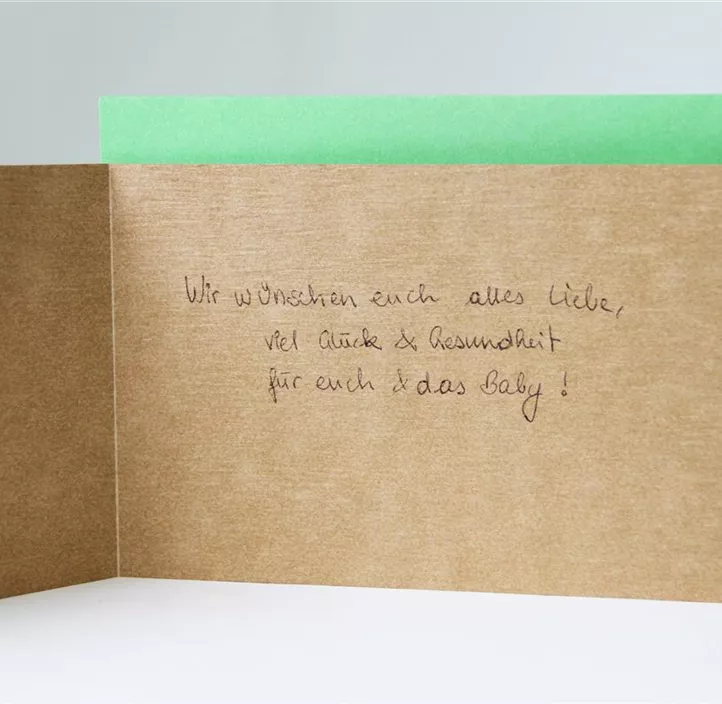 Wir wünschen euch alles Liebe,
viel Glück & Gesundheit
für euch & das Baby!